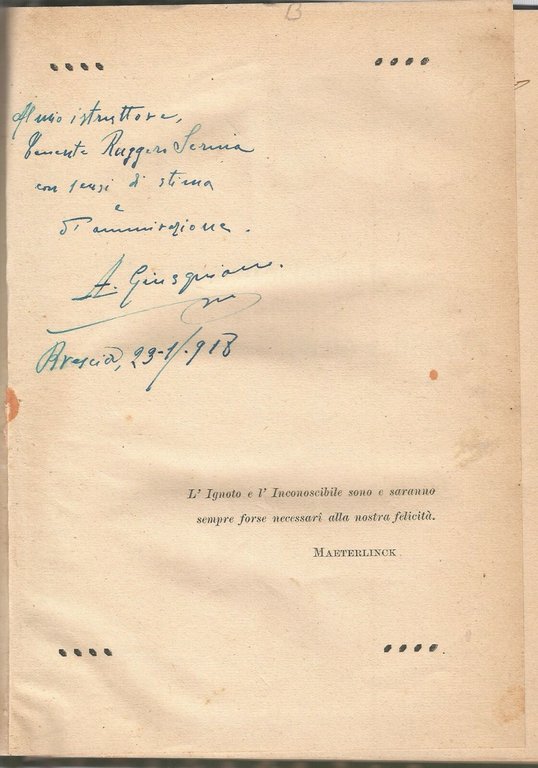 B
Al mio istruttore,
Tenente Ruggeri Serina
con sensi di stima
e
d'ammirazione.
A.
Brescia, 23-1/918
L' Ignoto e l' Inconoscibile sono e saranno
sempre forse necessari alla nostra felicità.
MAETERLINCK